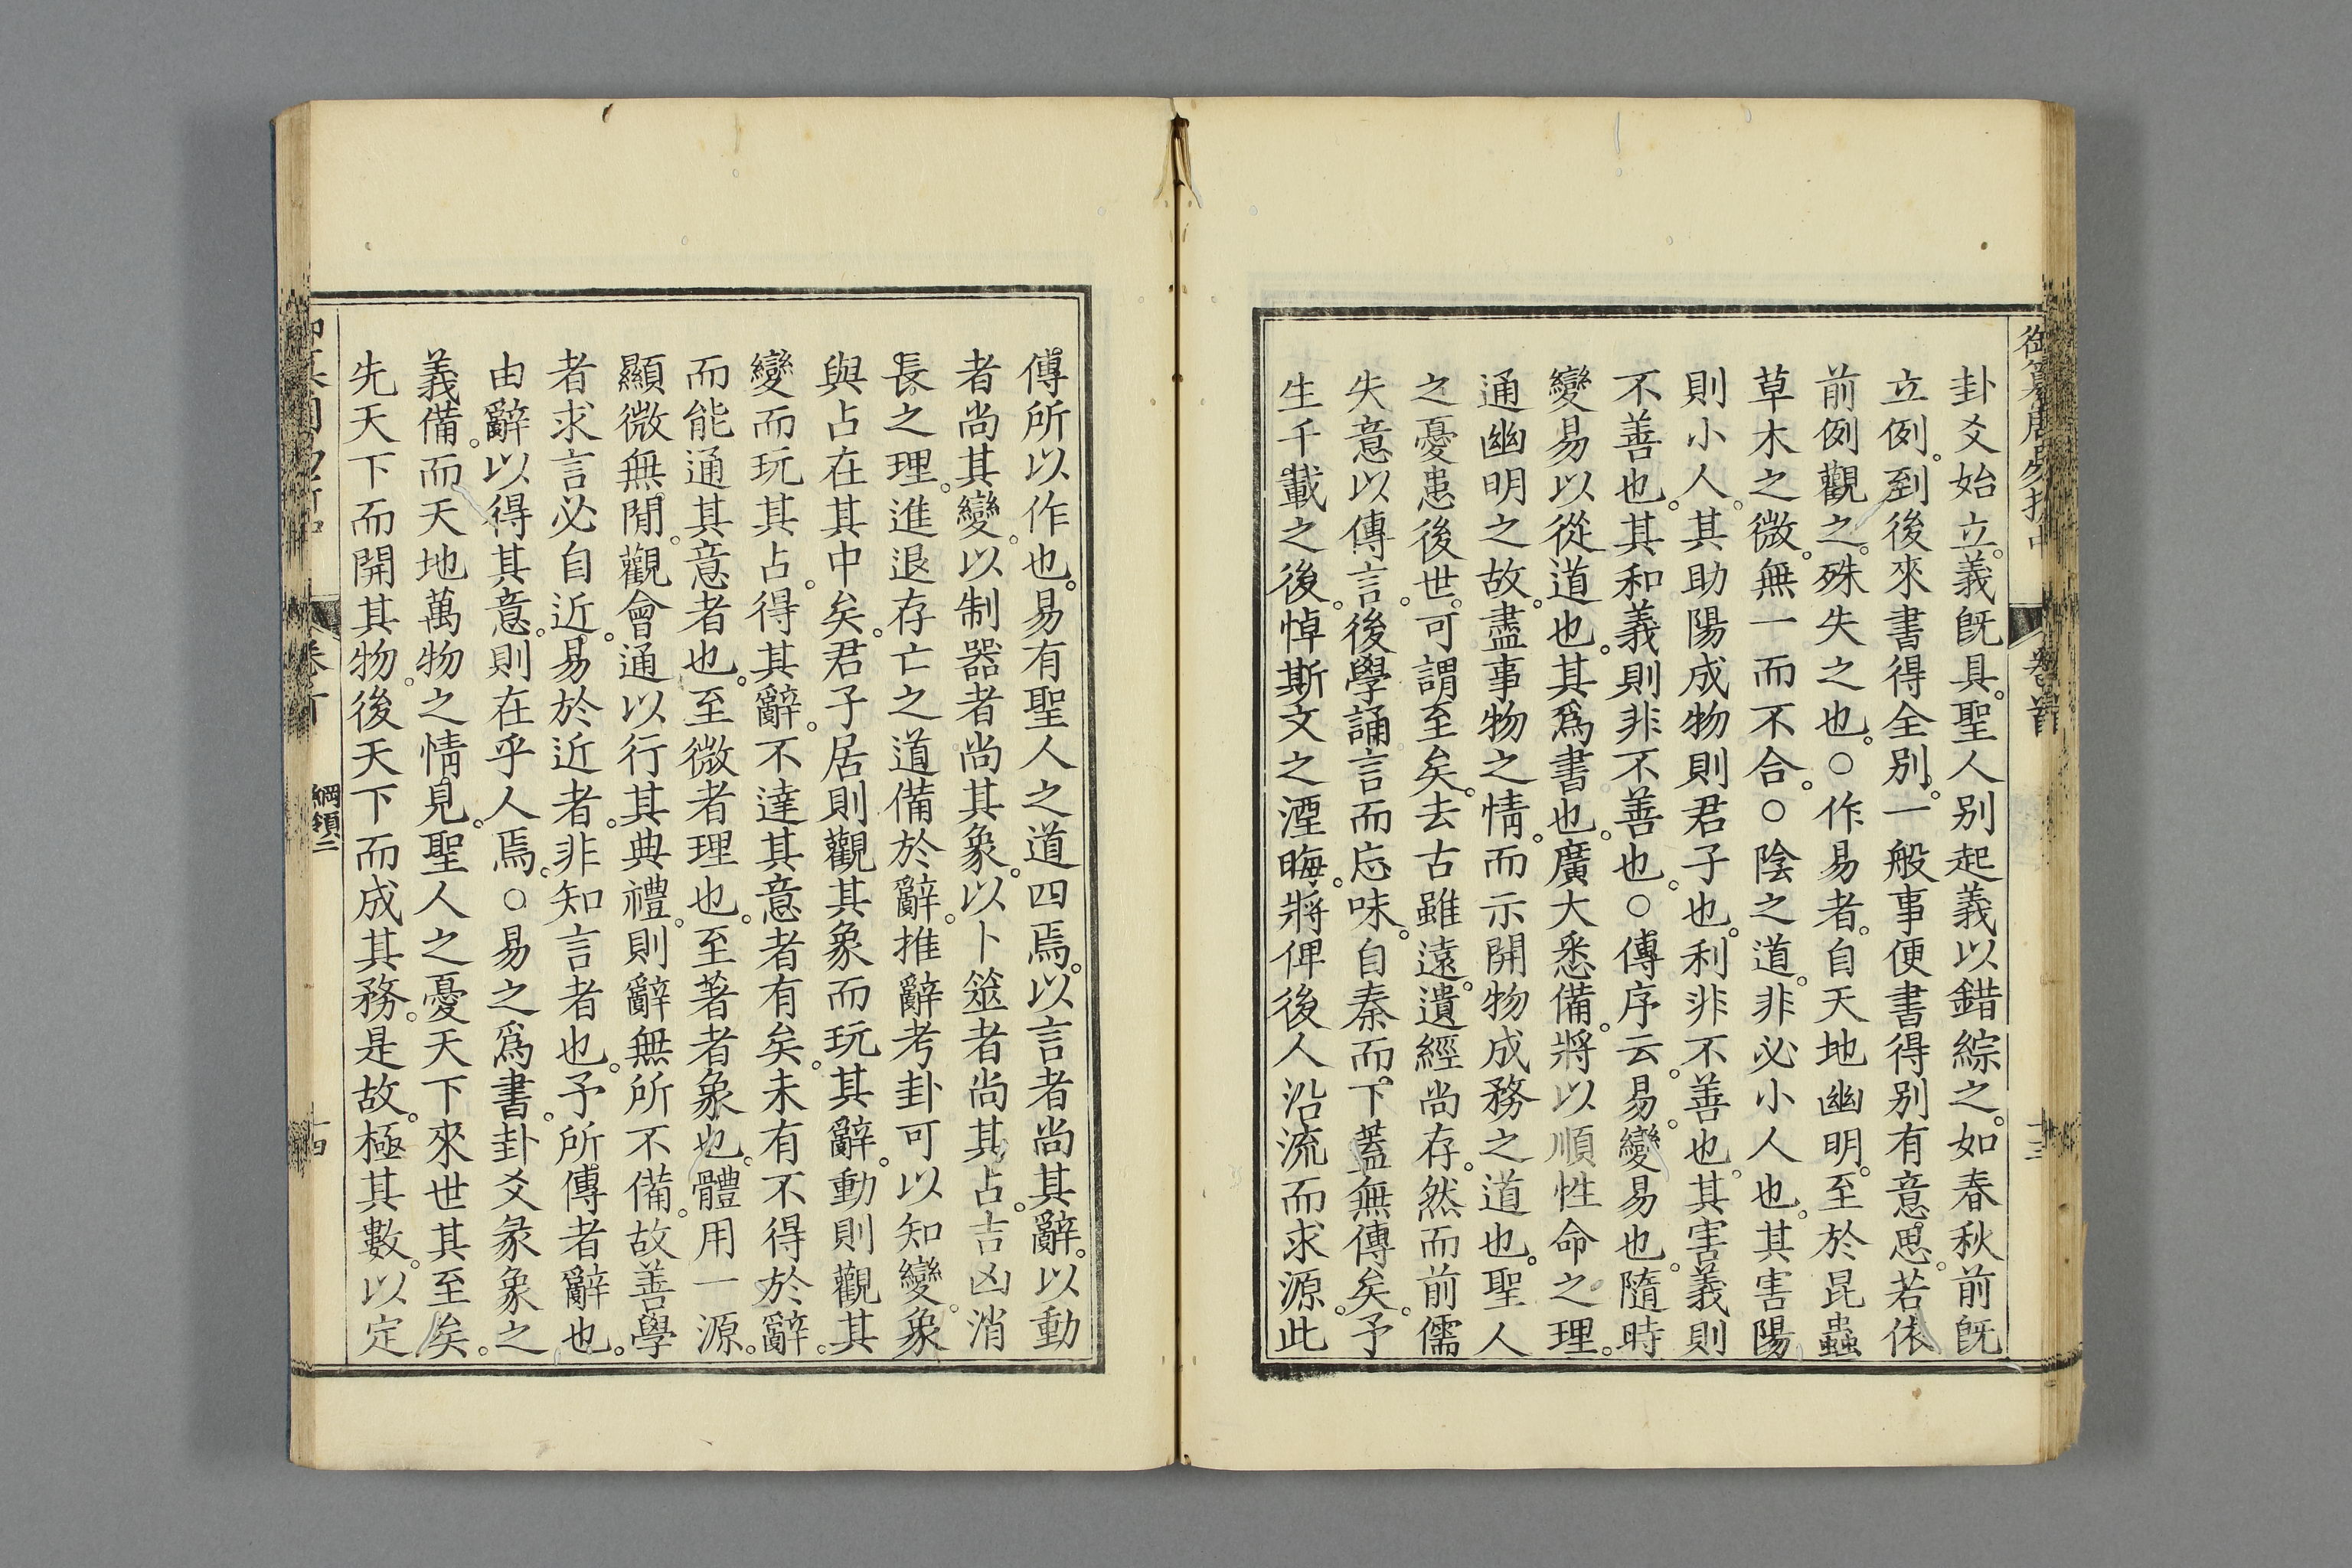 卦爻始立。義旣具。聖人別起義以錯綜之。如春秋前旣
立例。到後來書得全別。一般事便書得別有意思。若依
前例觀之。殊失之也。○作易者。自天地幽明。至於昆蟲
草木之微。無一而不合。○陰之道。非必小人也。其害陽
則小人。其助陽成物則君子也。利非不善也。其害義則
不善也。其和義則非不善也。○傳序云。易。變易也。隨時
變易以從道也。其爲書也。廣大悉備。將以順性命之理。
通幽明之故。盡事物之情。而示開物成務之道也。聖人
之憂患後世。可謂至矣。去古雖遠。遺經尚存。然而前儒
失意以傳言。後學誦言而忘味。自秦而下。蓋無傳矣。予
生千載之後。悼斯文之湮晦。將俾後人沿流而求源。此
御纂周易折中
卷首
十三
傳所以作也。易有聖人之道四焉。以言者尚其辭。以動
者尚其變。以制器者尚其象。以卜筮者尚其占。吉凶消
長之理。進退存亡之道備於辭。推辭考卦可以知變。象
與占在其中矣。君子居則觀其象而玩其辭。動則觀其
變而玩其占。得其辭。不達其意者有矣。未有不得於辭。
而能通其意者也。至微者理也。至著者象也。體用一源。
顯微無閒。觀會通以行其典禮。則辭無所不備。故善學
者求言必自近。易於近者。非知言者也。予所傳者辭也。
由辭以得其意。則在乎人焉。○易之爲書。卦爻彖象之
義備。而天地萬物之情見。聖人之憂天下來世其至矣。
先天下而開其物。後天下而成其務。是故。極其數。以定
綱領二